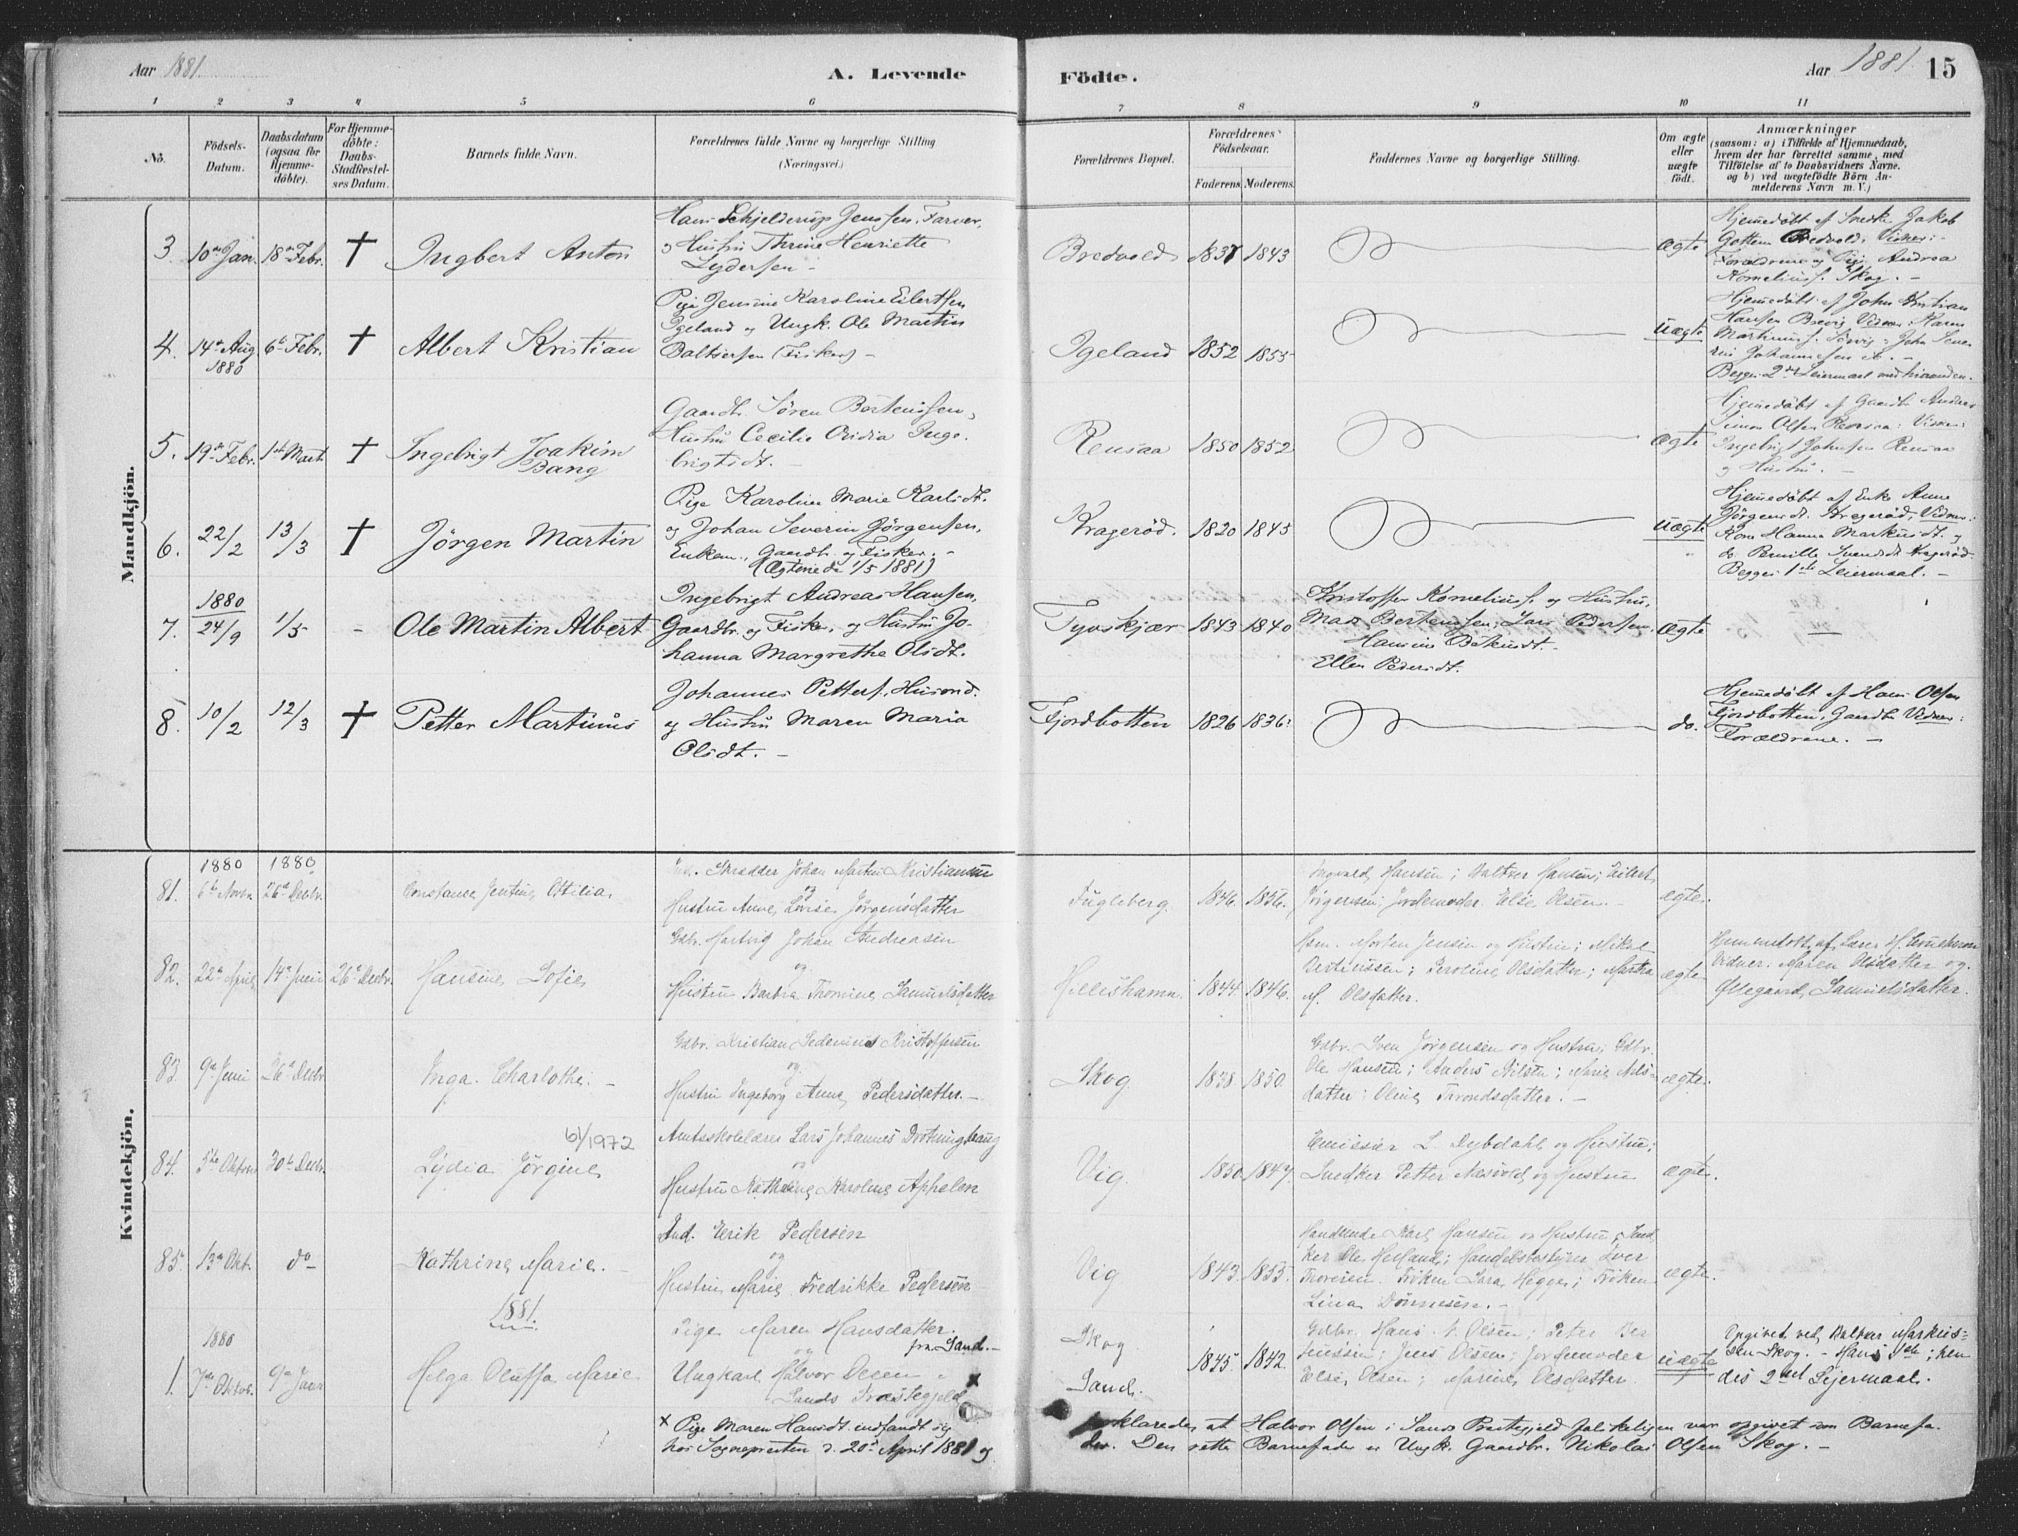 Aar 1881.
A. Levende
Födte.
Aar 1881.
15
1 2 3 4 5 6
7 8 9 10 11
No.
Födsels-
Datum.
Daabsdatum
(ogsaa for
Hjemme-
døbte).
For Hjemme-
døbte:
Daabs-
Stadfæstel-
ses Datum.
Barnets fulde Navn.
Forældrenes fulde Navne og borgerlige Stilling
(Næringsvei.)
Forældrenes Bopæl.
Forældrenes
Födselsaar.
Faderens.
Moderens.
Faddernes Navne og borgerlige Stilling.
Om ægte
eller
uægte
födt.
Anmærkninger
(saasom: a) i Tilfælde af Hjemmedaab,
hvem der har forrettet samme, med
Tilföielse af to Daabsvidners Navne.
og b) ved uægtefödte Börn An-
melderens Navn m. V.)
Mandkjön.
3. 10de Jan. 18de Febr. † Ingbert Anton
Hans Schjelderup Jenssen, Farver,
og Hustru Thrine Henriette
Lydersen -
Bredvold 1837 1843 ægte
Hjemmedøbt af Snedk. Jakob
Gottem Bredvold, Vidner:
Forældrene og Pige Andrea
Kornelius. Skog. -
4. 14de Aug. 1880 6te Febr. † Albert Kristian
Pige Jensine Karoline Eilertsen
Igeland og Ungk. Ole Martin
Baltsersen (Fisker) -
Igeland 1852 1855 uægte
Hjemmedøbt af John Kristian
Hansen Brevig Vidner Karen
Johannesen
Begges 2det Leiermaal med hinanden.
5. 19de Febr. 1ste Marts † Ingebrigt Joakim
Bang
Gaardbr. Søren Bertenssen,
Hustru Cecilie Ovidia Inge-
brigtsdt. -
Rensaa 1850 1852 ægte
Hjemmedøbt af Gaardbr. Andreas
Simon Olsen Rensaa: Vidner:
Ingebrigt Johnsen Rensaa
og Hustru. -
6. 22/2 13/3 † Jörgen Martin
Pige Karoline Marie Karlsdt.
og Johan Severin Jörgensen,
Enkem., Gaardbr. og Fisker. -
(Ægteviede 1/5 1881)
Kragerød. 1820 1845 uægte
Hjemmedøbt af Enke Anne
Jørgensdt. Kragerød, Vidner:
Kone Hanna Markusdt. og
do. Pernille Svendsdt. Kragerød
Begges 1ste Leiermaal. -
7. 1880 24/9 1/5 - Ole Martin Albert
Ingebrigt Andreas Hansen,
Gaardbr. og Fisker, og Hustru Jo-
hanna Margrethe Olsdt.
Tyvskjær 1843 1840
Kristoffer Kornelius. og Hustru,
Mas Bertenssen; Lars Pedersen
Ellen Pedersdt.
ægte -
8. 10/2 12/3 † Petter Martinus
Johannes Petters. Husmd.
og Hustru Maren Maria
Olsdt. -
Fjordbotten 1826 1836: do.
Hjemmedøbt af Hans Olsen
Fjordbotten, Gaardbr. Vidner:
Forældrene. -
Kvindekjön.
1880 1880
81. 6te Novbr 26de Decbr. Constance Jentine Ottilia,
Skrædder Johan Martin Kristiansen
og
Hustru Anne Lovise Jørgensdatter
Fugleberg. 1846. 1856.
Ingvald Hansen; Baltser Hansen; Eilert
Jørgensen; Jordemoder Else Olsen. -
ægte.
82. 22de April 14de Juni 26de Decbr. Hansine Sofie
Gdbr. Hartvig Johan Andreasen
og
Hustru Barbra Thomine Samuelsdatter
Hilleshamn. 1844. 1846.
Hsm. Morten Jensen og Hustru; Mikal
Bertinussen; Olsdatter; Martha
M. Olsdatter.
ægte
Hjemmedøbt af Lars M.
Vidner. Maren Olsdatter og
Ollegaard Samuelsdatter.
83. 9de Juni 26de Decbr Inga Charlothe. -
Gdbr. Kristian Pedenius Kristoffersen
og
Hustru Ingeborg Anne Pedersdatter. -
Skog. 1838. 1850.
Gdbr. Sven Jørgensen og Hustru; Gdbr.
Ole Hansen; Anders Nilsen; Marie Nils-
datter; Oline Throndsdatter. -
ægte.
84. 5te Oktobr 30te Decbr. Lydia Jørgine
6/1972
Amtsskolelærer Lars Johannes Dronninghaug
og
Hustru Kathrine Karoline Aphelen
Vig. 1850. 1847.
Emissær L Dybdahl og Hustru;
Snedker Petter Næsvold og Hustru
ægte.
85. 13de Okt. do Kathrine Marie. -
Ind. Eerik Pedersen
og
Hustru Marie Fredrikke Pedersen
Vig 1843. 1855.
Handlende Karl Hansen og Hustru; Sned-
ker Ole Helland; Handelsbestyrer Iver
Thoresen. Frøken Sara Hegge; Frøken
Lina Dønnesen. -
ægte.
1881.
1880
1. 7de Oktob. 9de Janr Helga Oluffa Marie
Pige Maren Hansdatter.
og fra Sand. -
Ungkarl Halvor Olsen
Sands Præstegjeld ×
Skog
Sand. 1845. 1842.
Gdbr. Hans N. Olsen; Peter Ber-
tinussen; Jens Olsen; Jordemoder
Else Olsen; Marine Olsdatter.
uægte
Opgivet ved Baltser Markus-
sen Skog. - Hans 1ste; hen-
des 2det Lejermaal.
× Pige Maren Hansdt. indfandt sig
hos Sognepresten d. 20de April 1881 og
erklærede, at Halvor Olsen i Sands Præstegjeld falskeligen var opgivet som Barnefa-
der. Den rette Barnefader er Ungk. Gaardbr. Nikolai Olsen Skog. -